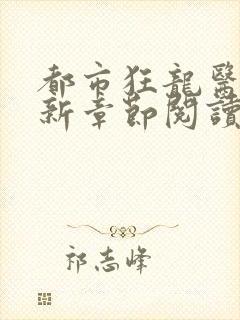 都市狂龍醫
新章節閱讀
祁志峰